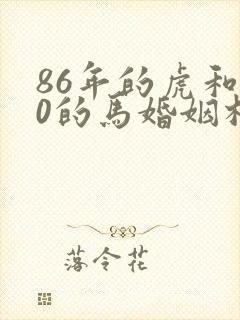 86年的虎和
0的馬婚姻
落令花